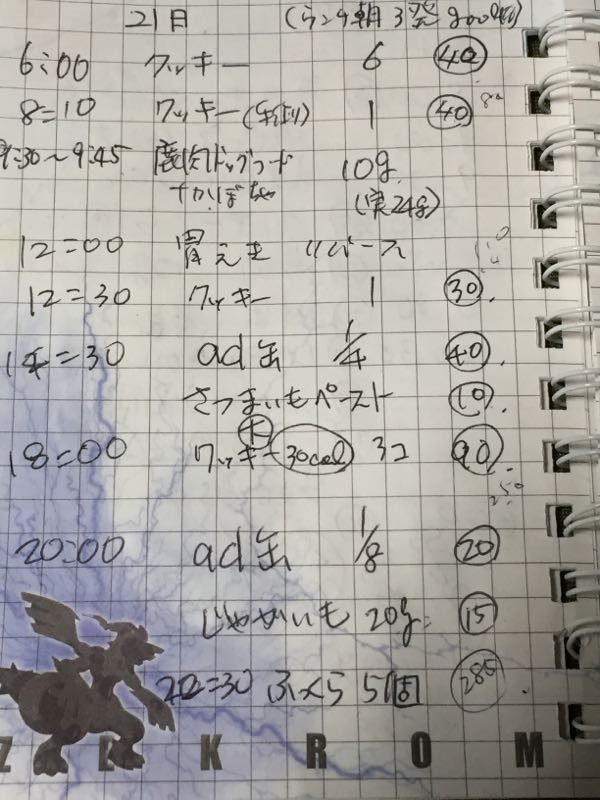 21日 (うンチ朝3発 800cal)
6:00 クッキー 6 40
8=10 クッキー 1 40 80
9:30~9:45 鹿肉ドッグフード 10g
+かぼちゃ (実24g)
12=00 胃えき リバース
12=30 クッキー 1 30
14=30 ad缶 1/4 40
さつまいもペースト 10
大
18=00 クッキー 30cal 3コ 90
250
20:00 ad缶 1/8 20
じゃがいも 20g 15
22=30 ふくら 5個 285
Z E K R O M